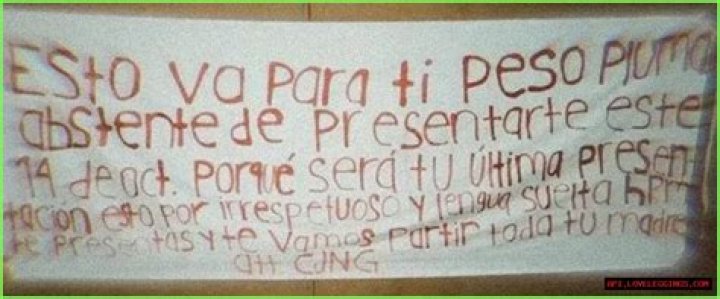 Esto va para ti peso pluma
abstente de presentarte este
14 de oct. Porqué será tu última presen-
tación esto por irrespetuoso y lengua suelta hpm
te presentas y te vamos partir toda tu madre
att CJNG
API.LOVELEGGINGS.COM